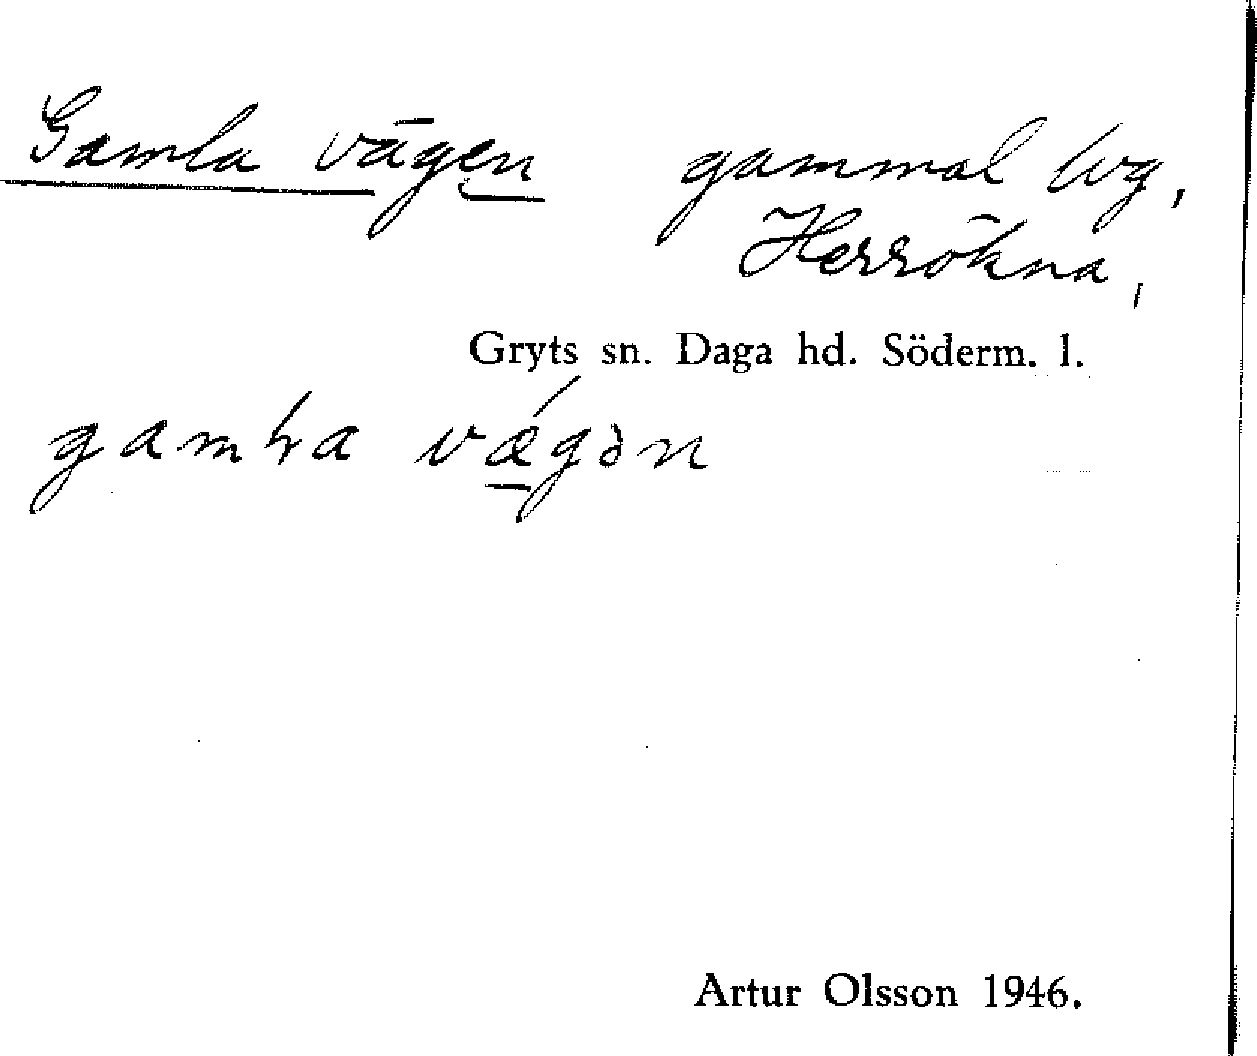 Gamla vägen gammal lvg,
Herrökna,
Gryts sn. Daga hd. Söderm. l.
gamɫa vǽgən
Artur Olsson 1946.